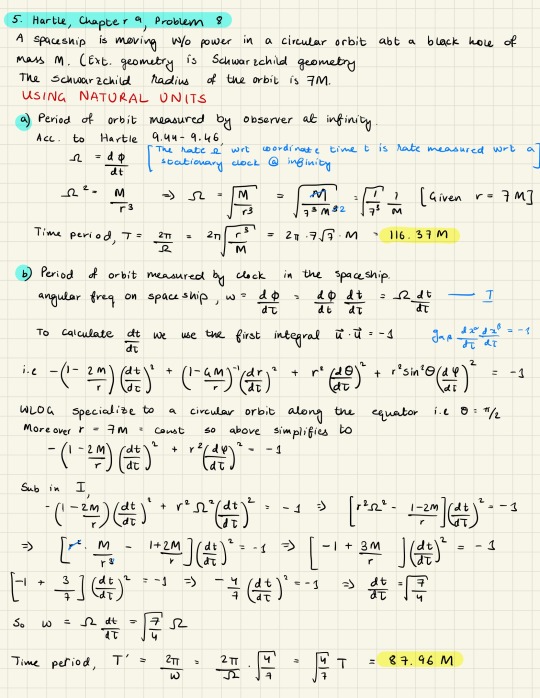 5. Hartle, Chapter 9, Problem 8
A spaceship is moving w/o power in a circular orbit abt a black hole of
mass M. (Ext. geometry is Schwarzchild geometry
The Schwarzchild radius of the orbit is 7M.
USING NATURAL UNITS
a) Period of orbit measured by observer at infinity.
Acc. to Hartle 9.44-9.46,
Ω = dφ/dt [The rate Ω wrt coordinate time t is rate measured wrt a stationary clock @ infinity
Ω² = M/r³ ⇒ Ω = √(M/r³) = √(M/7³M³²) = √(1/7³) 1/M [Given r = 7M]
Time period, T = 2π/Ω = 2π√(r³/M) = 2π·7√7·M = 116.37M
b) Period of orbit measured by clock in the spaceship.
angular freq on spaceship, ω = dφ/dτ = dφ/dt dt/dτ = Ω dt/dτ — I
To calculate dt/dτ we use the first integral u⃗·u⃗ = -1 gαβ dx^α/dτ dx^β/dτ = -1
i.e -(1-2M/r)(dt/dτ)² + (1-2M/r)⁻¹(dr/dτ)² + r²(dθ/dτ)² + r²sin²θ(dφ/dτ)² = -1
WLOG specialize to a circular orbit along the equator i.e θ = π/2
Moreover r = 7M = const so above simplifies to
-(1-2M/r)(dt/dτ)² + r²(dφ/dτ)² = -1
Sub in I,
-(1-2M/r)(dt/dτ)² + r²Ω²(dt/dτ)² = -1 ⇒ [r²Ω² - 1-2M/r](dt/dτ)² = -1
⇒ [r²·M/r³ - 1+2M/r](dt/dτ)² = -1 ⇒ [-1 + 3M/r](dt/dτ)² = -1
[-1 + 3/7](dt/dτ)² = -1 ⇒ -4/7(dt/dτ)² = -1 ⇒ dt/dτ = √(7/4)
So ω = Ω dt/dτ = √(7/4) Ω
Time period, T' = 2π/ω = 2π/Ω · √(4/7) = √(4/7) T = 87.96 M